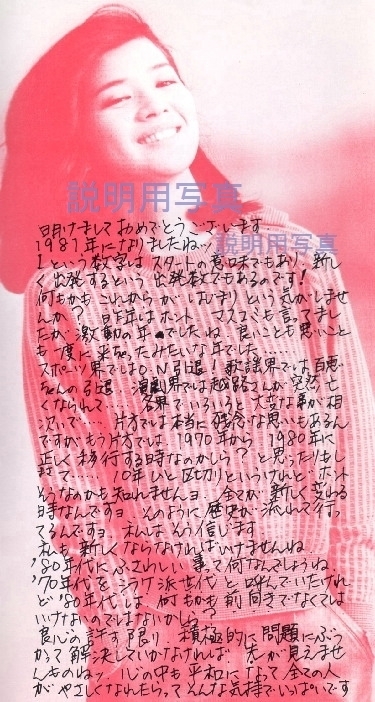 説明用写真
明けましておめでとうございます.
説明用写真
1981年になりましたねッ
1という数字は スタートの意味でもあり. 新し
く出発するという 出発数でもあるのです!
何もかも これからがはじまり という気がしませ
んか? 昨年はホント マスコミも言ってまし
たが 激動の年でしたね 良いことも悪いこと
も 一度に来ちゃったみたいな年でした
スポーツ界ではO.N引退! 歌謡界では百恵
ちゃんの引退. 演劇界では越路さんが突然亡
くなられて... 各界でいろいろと大変な事が相
次いで.... 片方では本当に残念な思いもあるん
ですが もう片方では. 1970年から 1980年に
正しく移行する時なのかしら? と思ったりもし
て... 10年ひと区切りというけれど ホント
そうなのかも知れませんョ. 全てが新しく変わる
時なんですョ そのように歴史が流れて行っ
てるんですョ. 私はそう信じます
私も新しくならなければいけませんね
'80年代にふさわしい事って何なんでしょうね.
'70年代をこうけ派世代と呼んでいたけれ
ど '80年代は 何もかも前向きでなくては
いけないのではないかしら?
良心の許す限り 積極的に問題にぶつ
かって解決していかなければ 先が見えませ
んものねッ. 心の中も平和になって 全ての人
がやさしくなれたらってそんな気持でいっぱいです